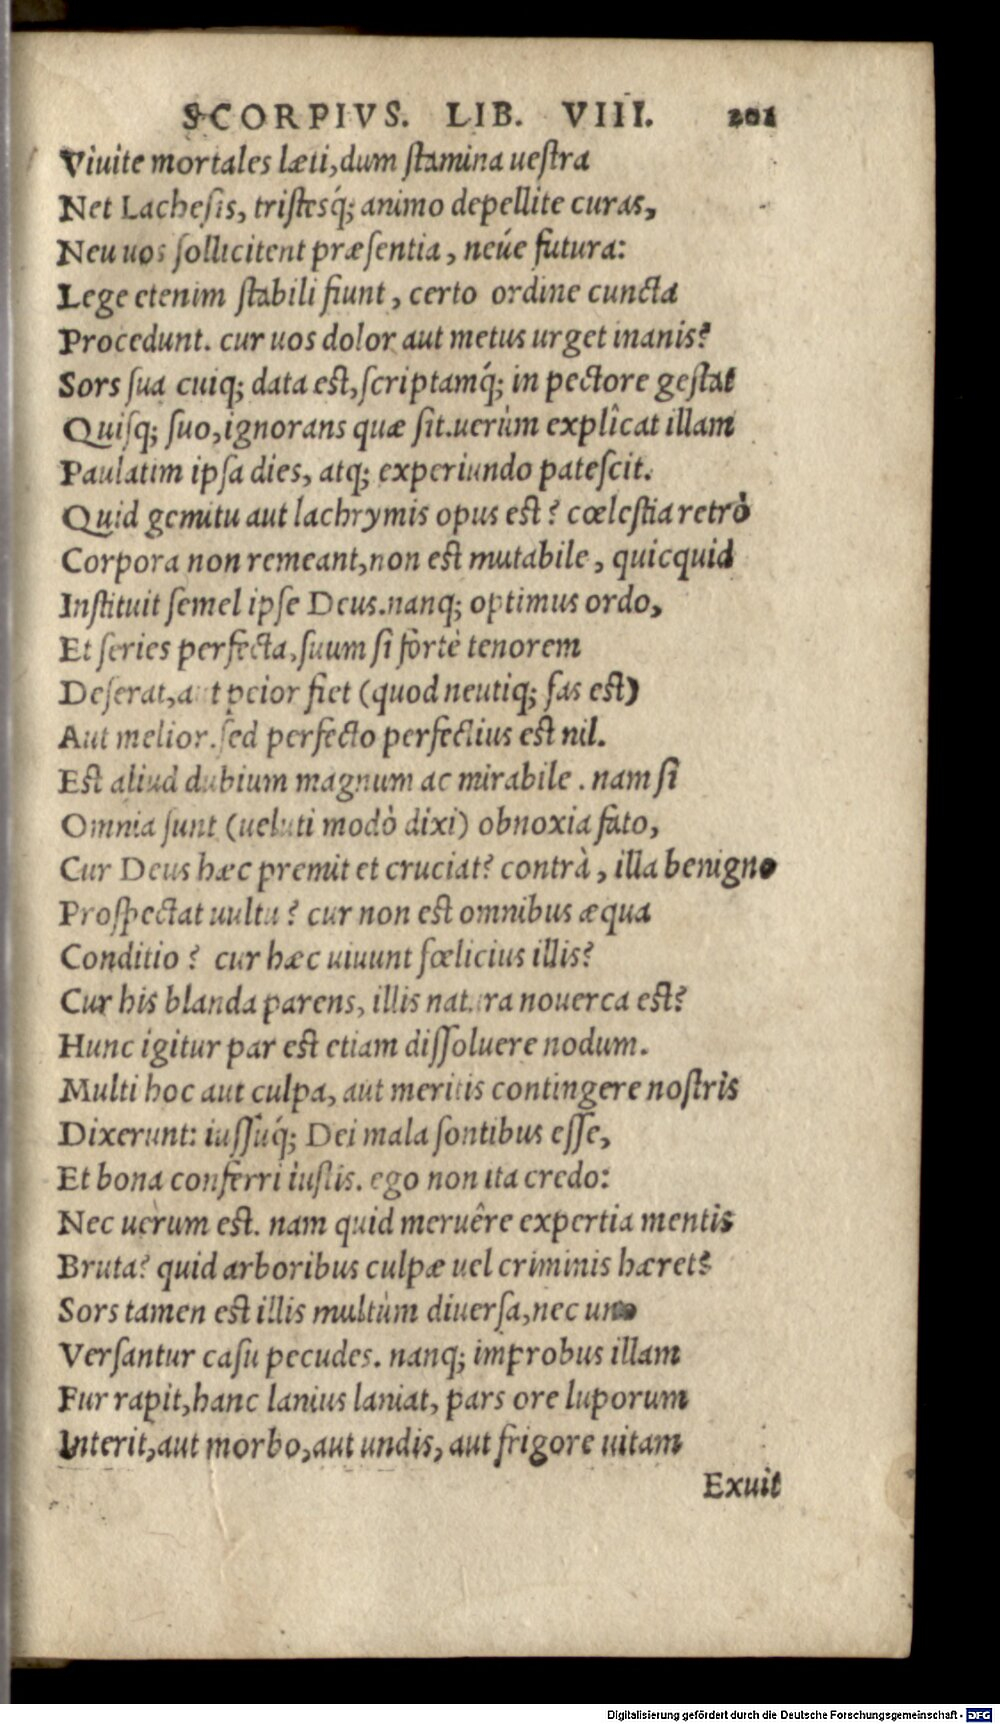 SCORPIVS. LIB. VIII. 201
Viuite mortales læti, dum ſtamina ueſtra
Net Lacheſis, triſtesq́; animo depellite curas,
Neu uos ſollicitent præſentia, neúe futura:
Lege etenim ſtabili fiunt, certo ordine cuncta
Procedunt. cur uos dolor aut metus urget inanis?
Sors ſua cuiq; data eſt, ſcriptamq́; in pectore geſtat
Quiſq; ſuo, ignorans quæ ſit. uerùm explicat illam
Paulatim ipſa dies, atq; experiundo pateſcit.
Quid gemitu aut lachrymis opus eſt? cœleſtia retrò
Corpora non remeant, non eſt mutabile, quicquid
Inſtituit ſemel ipſe Deus. nanq; optimus ordo,
Et ſeries perfecta, ſuum ſi fortè tenorem
Deſerat, aut peior fiet (quod neutiq; fas eſt)
Aut melior. ſed perfecto perfectius eſt nil.
Eſt aliud dubium magnum ac mirabile. nam ſi
Omnia ſunt (ueluti modò dixi) obnoxia fato,
Cur Deus hæc premit et cruciat? contrà, illa benigno
Proſpectat uultu? cur non eſt omnibus æqua
Conditio? cur hæc uiuunt fœlicius illis?
Cur his blanda parens, illis natura nouerca eſt?
Hunc igitur par eſt etiam diſſoluere nodum.
Multi hoc aut culpa, aut meritis contingere noſtris
Dixerunt: iuſſuq́; Dei mala ſontibus eſſe,
Et bona conferri iuſtis. ego non ita credo:
Nec uerum eſt. nam quid meruêre expertia mentis
Bruta? quid arboribus culpæ uel criminis hæret?
Sors tamen eſt illis multùm diuerſa, nec uno
Verſantur caſu pecudes. nanq; improbus illam
Fur rapit, hanc lanius laniat, pars ore luporum
Interit, aut morbo, aut undis, aut frigore uitam
Exuit
Digitalisierung gefördert durch die Deutsche Forschungsgemeinschaft - DFG